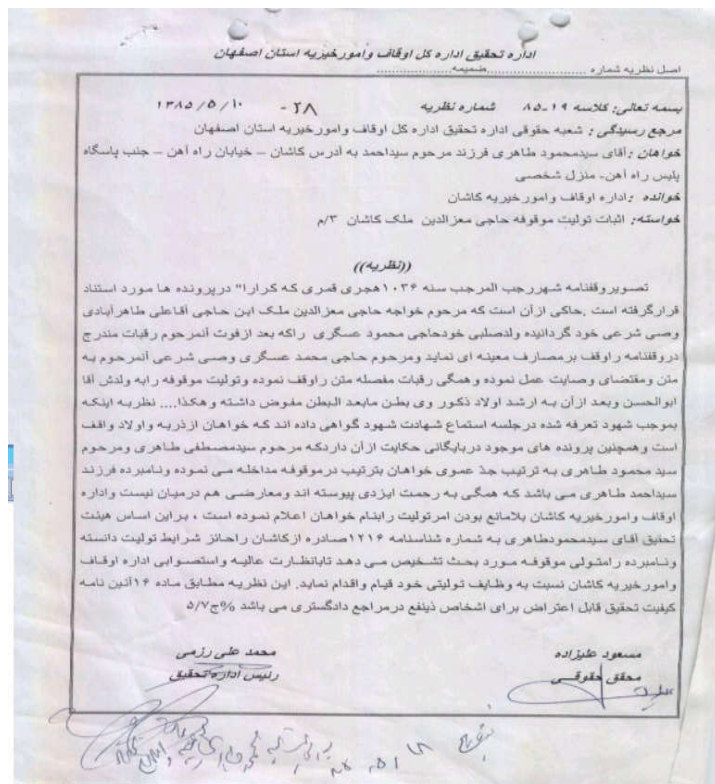 اداره تحقیق اداره کل اوقاف وامورخیریه استان اصفهان
اصل نظریه شماره ......................ضمیمه..................
بسمه تعالی؛ کلاسه ۱۹-۸۵ شماره نظریه ۲۸ - ۱۳۸۵/۵/۱۰
مرجع رسیدگی ؛ شعبه حقوقی اداره تحقیق اداره کل اوقاف وامورخیریه استان اصفهان
خواهان ؛آقای سیدمحمود طاهری فرزند مرحوم سیداحمد به آدرس کاشان – خیابان راه آهن – جنب پاسگاه
پلیس راه آهن- منزل شخصی
خوانده ؛اداره اوقاف وامورخیریه کاشان
خواسته؛ اثبات تولیت موقوفه حاجی معزالدین ملک کاشان ۳/م
((نظریه))
تصویروقفنامه شهررجب المرجب سنه ۱۰۳۶هجری قمری که کرارا" درپرونده ها مورد استناد
قرارگرفته است ,حاکی ازآن است که مرحوم خواجه حاجی معزالدین ملک ابن حاجی آقاعلی طاهرآبادی
وصی شرعی خود گردانیده ولدصلبی خودحاجی محمود عسگری راکه بعد ازفوت آنمرحوم رقبات مندرج
دروقفنامه راوقف برمصارف معینه ای نماید ومرحوم حاجی محمد عسگری وصی شرعی آنمرحوم به
متن ومقتضای وصایت عمل نموده وهمگی رقبات مفصله متن راوقف نموده وتولیت موقوفه رابه ولدش آقا
ابوالحسن وبعد ازآن به ارشد اولاد ذکور وی بطن مابعد البطن مفوض داشته وهکذا.... نظربه اینکه
بموجب شهود تعرفه شده درجلسه استماع شهادت شهود گواهی داده اند که خواهان ازذریه واولاد واقف
است وهمچنین پرونده های موجود دربایگانی حکایت ازآن داردکه مرحوم سیدمصطفی طاهری ومرحوم
سید محمود طاهری به ترتیب جد عموی خواهان بترتیب درموقوفه مداخله می نموده ونامبرده فرزند
سیداحمد طاهری می باشد که همگی به رحمت ایزدی پیوسته اند ومعارضی هم درمیان نیست واداره
اوقاف وامورخیریه کاشان بلامانع بودن امرتولیت رابنام خواهان اعلام نموده است ، براین اساس هیئت
تحقیق آقای سیدمحمودطاهری به شماره شناسنامه ۱۲۱۶صادره ازکاشان راحائز شرایط تولیت دانسته
ونامبرده رامتولی موقوفه مورد بحث تشخیص می دهد تابانظارت عالیه واستصوابی اداره اوقاف
وامورخیریه کاشان نسبت به وظایف تولیتی خود قیام واقدام نماید. این نظریه مطابق ماده ۱۶آئین نامه
کیفیت تحقیق قابل اعتراض برای اشخاص ذینفع درمراجع دادگستری می باشد %ج۵/۷
مسعود علیزاده محمد علی رزمی
محقق حقوقی رئیس اداره تحقیق